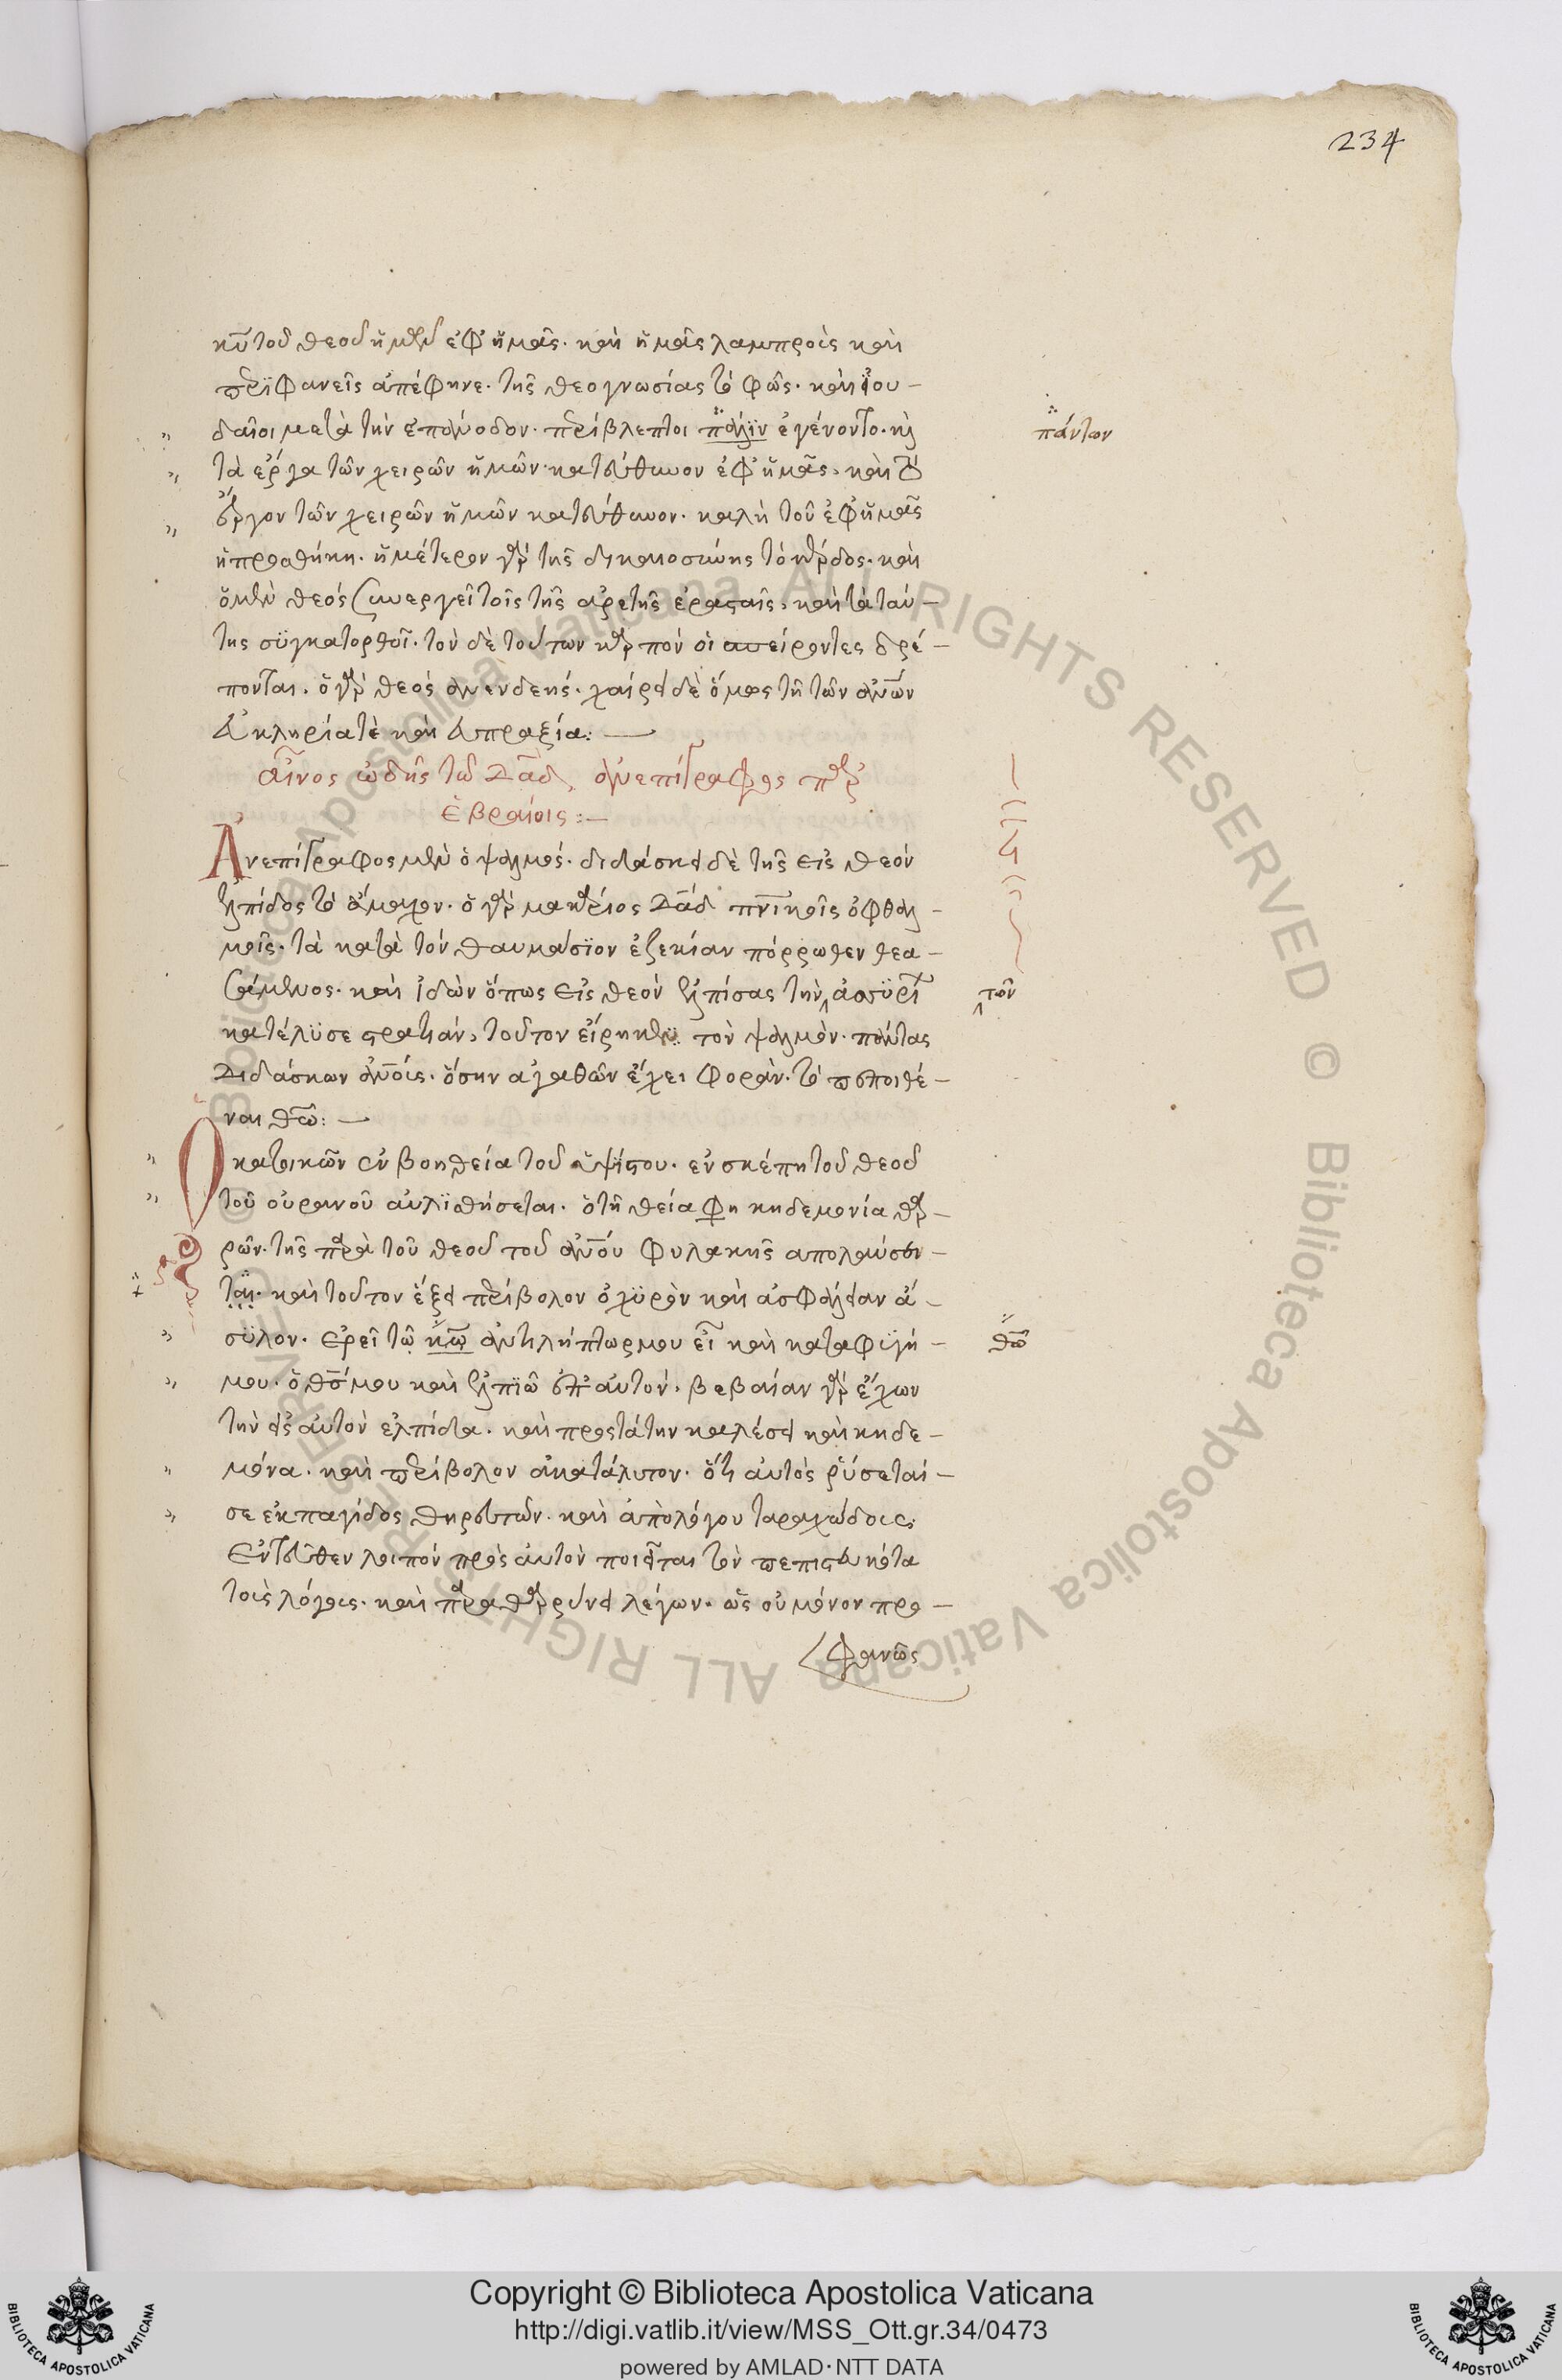 234
κυ τοῦ θεοῦ ἡμῶν ἐφ' ἡμᾶς. καὶ ἡμᾶς λαμπροὺς καὶ
περϊφανεῖς ἀπέφηνε. τῆς θεογνωσίας τὸ φῶς. καὶ ἰου-
δαῖοι μετὰ τὴν ἐπάνοδον. περίβλεπτοι πάλϊν ἐγένοντο. καὶ
πάντων
τὰ ἔργα τῶν χειρῶν ἡμῶν κατεύθυνον ἐφ' ἡμᾶς. καὶ τὸ
ἔργον τῶν χειρῶν ἡμῶν κατεύθυνον. καλὴ τοῦ ἐφ' ἡμᾶς
ἡ προσθήκη. ἡμέτερον γὰρ τῆς δικαιοσύνης τὸ κέρδος. καὶ
ὁ μὲν θεὸς συνεργεῖ τοῖς τῆς ἀρετῆς ἐρασταῖς, καὶ τὰ ταύ-
της σϋγκατορθοῖ. τὸν δὲ τούτων καρπὸν οἱ σπείροντες δρέ-
πονται. ὁ γὰρ θεὸς ἀνενδεής. χαίρει δὲ ὅμως τῆ τῶν ἀνων
εὐκληρία τὲ καὶ εὐπραξία:—
αἶνος ὠδῆς τῶ δαδ, ἀνεπίγραφος παρ'
ἑβραίοις:—
Ἀνεπίγραφος μὲν ὁ ψαλμός. διδάσκει δὲ τῆς εἰς θεὸν
ἐλπίδος τὸ ἄμαχον. ὁ γὰρ μακάριος δαδ πνικοῖς ὀφθαλ-
μοῖς. τὰ κατὰ τὸν θαυμάσϊον ἐζεκίαν πόρρωθεν θεα-
σάμενος. καὶ ἰδὼν ὅπως εἰς θεὸν ἐλπίσας τὴν ἀσσϋρί
τῶν
κατέλϋσε στρατιὰν, τοῦτον εἴρηκεν τὸν ψαλμὸν. πάντας
διδάσκων ἀνους. ὅσην ἀγαθῶν ἔχει φορὰν. τὸ πεποιθέ-
ναι θω:—
Ὁ κατοικῶν ἐν βοηθεία τοῦ ὑψίστου. ἐν σκέπη τοῦ θεοῦ
τοῦ οὐρανοῦ αὐλϊσθήσεται. ὁ τῆ θεία φη κηδεμονία θαρ-
ρῶν. τῆς παρὰ τοῦ θεοῦ τοῦ ἀνου φυλακῆς ἀπολαύσεν-
ται. καὶ τοῦτον ἕξει περίβολον ὀχϋρὸν καὶ ἀσφάλειαν ἄ-
σϋλον. ἐρεῖ τῶ κω ἀντιλήπτωρ μου εἶ καὶ καταφϋγή-
θω
μου. ὁ θς μου καὶ ἐλπιῶ ἐπ' αὐτόν. βεβαίαν γὰρ ἔχων
τὴν εἰς αὐτὸν ἐλπίδα. καὶ προστάτην καλέσει καὶ κηδε-
μόνα. καὶ περίβολον ἀκατάλυτον. ὅτι αὐτὸς ῥύσεταί-
σε ἐκ παγίδος θηρευτῶν. καὶ ἀπὸ λόγου ταραχώδους.
Ἐντεῦθεν λοιπὸν πρὸς αὐτὸν ποιεῖται τὸν πεπιστευκότα
τοὺς λόγους. καὶ παραθαρρύνει λέγων. ὡς οὐ μόνον προ-
φανῶς
Copyright © Biblioteca Apostolica Vaticana
http://digi.vatlib.it/view/MSS_Ott.gr.34/0473
powered by AMLAD·NTT DATA